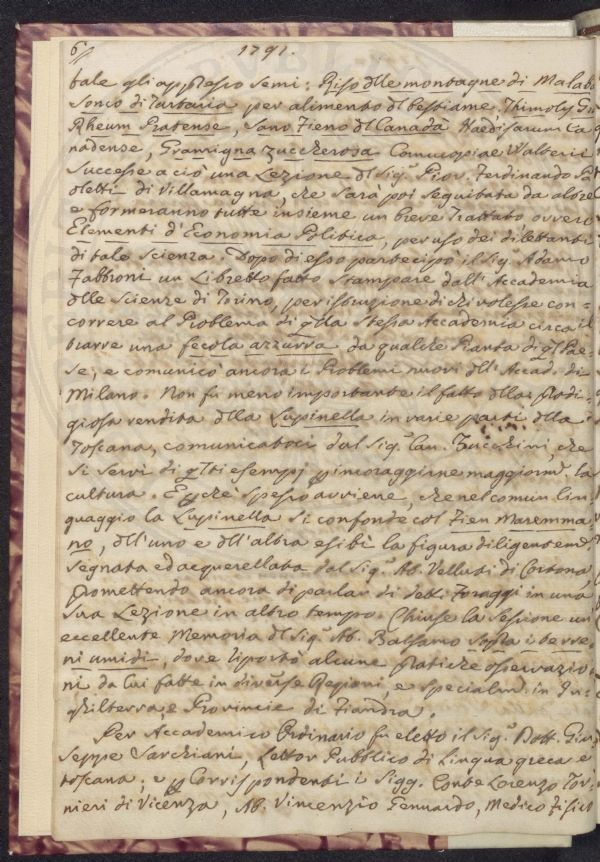 6 // 1791.
tale gli appresso semi: Riso dlle montagne di Malab
Sonco di Tartaria per alimento dl bestiame, Thimoly Gr
Rheum Pratense, Sano Fieno dl Canadà Haedisarum Ca
nadense, Gramigna zuccherosa Cornucopiae Walterii
Successe a ciò una Lezione dl Sig. Piov. Ferdinando
oletti di Villamagna, che sarà poi seguitata da altre
e formeranno tutte insieme un breve Trattato ovvero
Elementi d'Economia Politica, per uso dei dilettanti
di tale scienza. Dopo di esso partecipò il Sig. Adamo
Fabbroni un Libretto fatto stampare dall'Accademia
dlle Scienze di Torino, per istruzione di chi volesse con=
correre al Problema di qlla stessa Accademia circa il
trarre una fecola azzurra da qualche Pianta di ql Pae
se, e comunicò ancora i Problemi nuovi dll'Accad. di
Milano. Non fu meno importante il fatto dlla Prodi=
giosa vendita dlla Lupinella in varie parti dlla
Toscana, comunicatoci dal Sig. Can. Zucchini, che
si servì di qlti esempj p incoraggirne maggiormte la
cultura. E pchè spesso avviene, che nel comun lin
guaggio la Lupinella si confonde col Fien Maremma
no, dll'uno e dll'altra esibì la figura diligentemte
segnata ed acquerellata dal Sig. Ab. Velluti di Cortona,
promettendo ancora di parlar di detti Foraggi in una
sua Lezione in altro tempo. Chiuse la Sessione un'
eccellente Memoria dl Sig. Ab. Balsamo sopra i terre
ni umidi, dove riportò alcune pratiche osservazio
ni da lui fatte in diverse Regioni, e specialmte in In
ghilterra, e Provincie di Fiandra.
Per Accademico Ordinario fu eletto il Sig. Dott. Giu
seppe Sarchiani, Lettor Pubblico di Lingua greca e
toscana; e p Corrispondenti i Sigg. Conte Lorenzo Tor
nieri di Vicenza, Ab. Vincenzio Gennardo, Medico Fisico